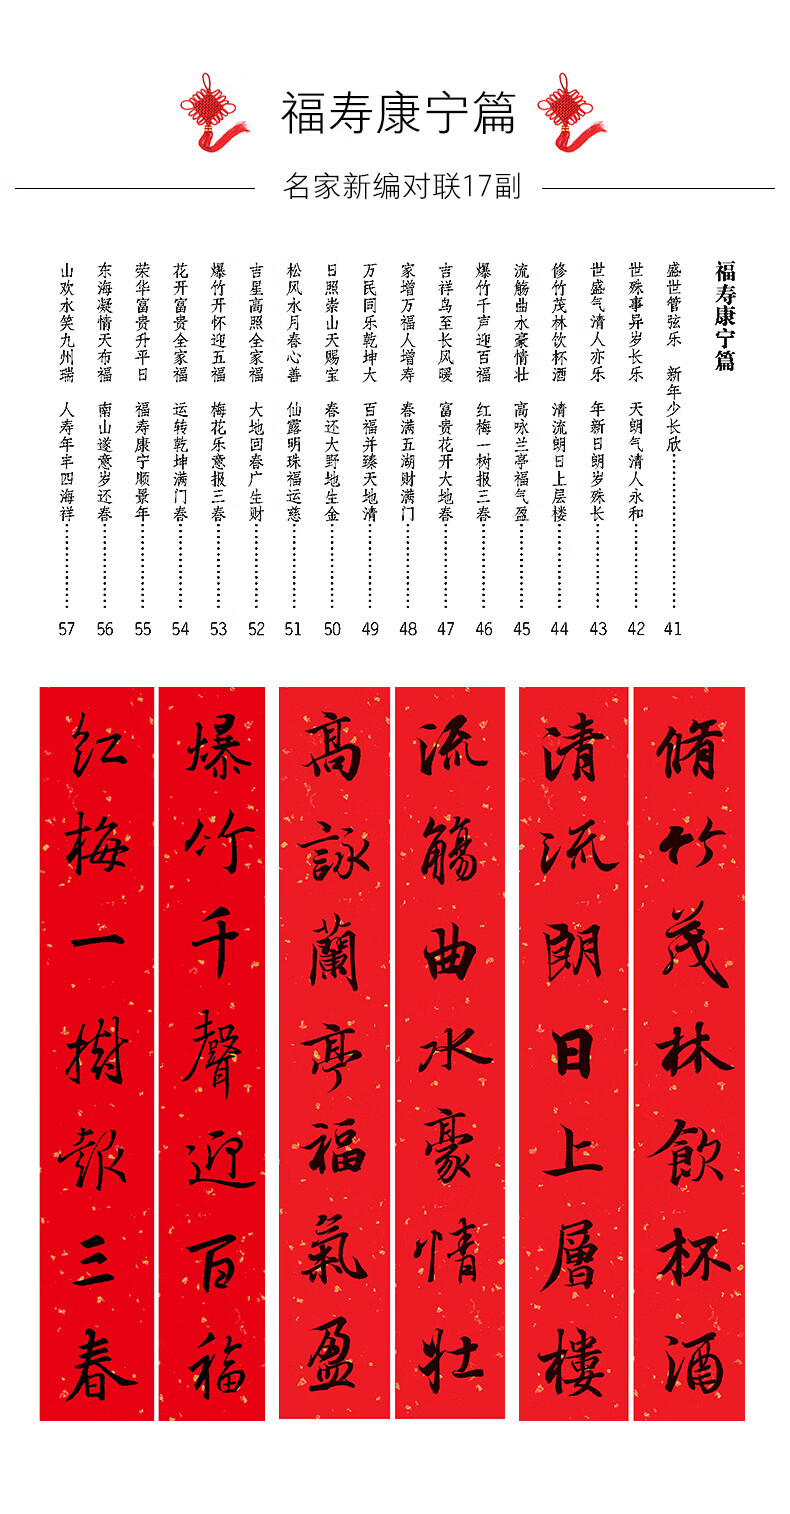 福寿康宁篇
名家新编对联17副
福寿康宁篇
盛世管弦乐 新年少长欣 41
世殊事异岁长乐 天朗气清人永和 42
世盛气清人亦乐 年新日朗岁殊长 43
修竹茂林饮杯酒 清流朗日上层楼 44
流觞曲水豪情壮 高咏兰亭福气盈 45
爆竹千声迎百福 红梅一树报三春 46
吉祥鸟至长风暖 富贵花开大地春 47
家增万福人增寿 春满五湖财满门 48
万民同乐乾坤大 百福并臻天地清 49
日照崇山天赐宝 春还大野地生金 50
松风水月春心善 仙露明珠福运慈 51
吉星高照全家福 大地回春广生财 52
爆竹开怀迎五福 梅花乐意报三春 53
花开富贵全家福 运转乾坤满门春 54
荣华富贵升平日 福寿康宁顺景年 55
东海凝情天布福 南山遂意岁还春 56
山欢水笑九州瑞 人寿年丰四海祥 57
脩竹茂林飲杯酒
清流朗日上層樓
流觴曲水豪情壮
高詠蘭亭福氣盈
爆竹千聲迎百福
红梅一樹報三春